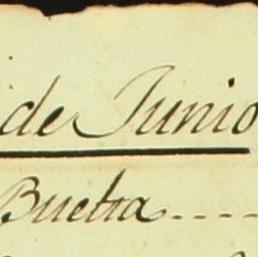 de Junio
Buelta----